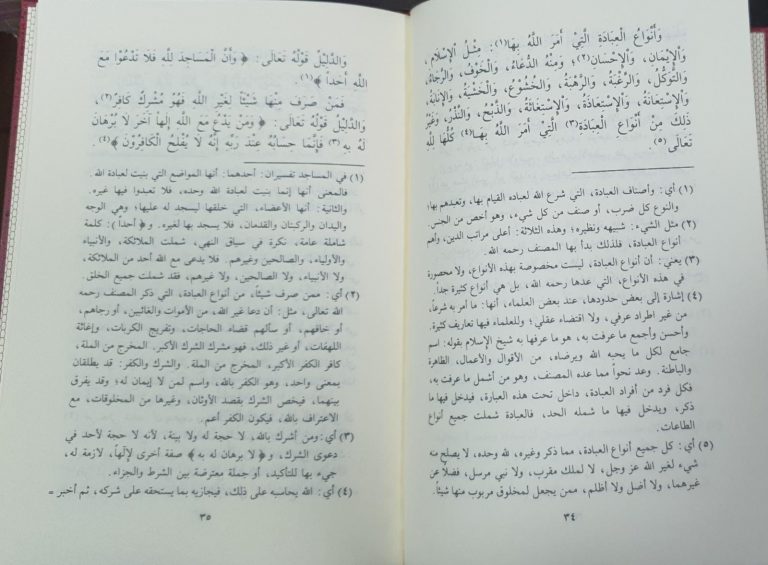 وَأَنْوَاعُ الْعِبَادَةِ الَّتِيْ أَمَرَ اللَّهُ بِهَا(١): مِثْلُ الْإِسْلَامِ،
وَالْإِيْمَانِ، وَالْإِحْسَانِ(٢)؛ وَمِنْهُ الدُّعَاءُ، وَالْخَوْفُ، وَالرَّجَاءُ،
وَالتَّوَكُّلُ، وَالرَّغْبَةُ، وَالرَّهْبَةُ، وَالْخُشُوْعُ، وَالْخَشْيَةُ، وَالْإِنَابَةُ،
وَالْإِسْتِعَانَةُ، وَالْإِسْتِعَاذَةُ، وَالْإِسْتِغَاثَةُ، وَالذَّبْحُ، وَالنَّذْرُ، وَغَيْرُ
ذٰلِكَ مِنْ أَنْوَاعِ الْعِبَادَةِ(٣) الَّتِيْ أَمَرَ اللَّهُ بِهَا(٤) كُلُّهَا لِلَّهِ
تَعَالَى(٥).
(١) أي: وأصناف العبادة، التي شرع الله لعباده القيام بها، وتعبدهم بها؛
والنوع كل ضرب، أو صنف من كل شيء، وهو أخص من الجنس.
(٢) مثل الشيء: شبيهه ونظيره؛ وهذه الثلاثة: أعلى مراتب الدين، وأهم
أنواع العبادة، فلذلك بدأ بها المصنف رحمه الله.
(٣) يعني: أن أنواع العبادة، ليست مخصوصة بهذه الأنواع، ولا محصورة
في هذه الأنواع، التي عدها رحمه الله، بل هي أنواع كثيرة جداً.
(٤) إشارة إلى بعض حدودها، عند بعض العلماء، أنها: ما أمر به شرعاً،
من غير اطراد عرفي، ولا اقتضاء عقلي؛ وللعلماء فيها تعاريف كثيرة.
وأحسن وأجمع ما عرفت به، هو ما عرفها به شيخ الإسلام بقوله: اسم
جامع لكل ما يحبه الله ويرضاه، من الأقوال والأعمال، الظاهرة
والباطنة. وعد نحواً مما عده المصنف، وهو من أشمل ما عرفت به،
فكل فرد من أفراد العبادة، داخل تحت هذه العبارة، فيدخل فيها ما
ذكر، ويدخل فيها ما شمله الحد، فالعبادة شملت جميع أنواع
الطاعات.
(٥) أي: كل جميع أنواع العبادة، مما ذكر وغيره، لله وحده، لا يصلح منه
شيء لغير الله عز وجل، لا لملك مقرب، ولا نبي مرسل، فضلاً عن
غيرهما، ولا أضل ولا أظلم، ممن يجعل لمخلوق مربوب منها شيئاً.
٣٤
وَالدَّلِيْلُ قَوْلُهُ تَعَالَى: ﴿ وَأَنَّ الْمَسَاجِدَ لِلَّهِ فَلَا تَدْعُوْا مَعَ
اللَّهِ أَحَداً ﴾(١).
فَمَنْ صَرَفَ مِنْهَا شَيْئاً لِغَيْرِ اللَّهِ فَهُوَ مُشْرِكٌ كَافِرٌ(٢)،
وَالدَّلِيْلُ قَوْلُهُ تَعَالَى: ﴿ وَمَنْ يَدْعُ مَعَ اللَّهِ إِلٰهاً آخَرَ لَا بُرْهَانَ
لَهُ بِهِ(٣) فَإِنَّمَا حِسَابُهُ عِنْدَ رَبِّهِ إِنَّهُ لَا يُفْلِحُ الْكَافِرُوْنَ ﴾(٤).
(١) في المساجد تفسيران: أحدهما: أنها المواضع التي بنيت لعبادة الله.
فالمعنى أنها إنما بنيت لعبادة الله وحده، فلا تعبدوا فيها غيره.
والثانية: أنها الأعضاء، التي خلقها ليسجد له عليها؛ وهي الوجه
واليدان والركبتان والقدمان، فلا يسجد بها لغيره. و﴿ أحداً ﴾: كلمة
شاملة عامة، نكرة في سياق النهي، شملت الملائكة، والأنبياء
والأولياء، والصالحين وغيرهم. فلا يدعى مع الله أحد من الملائكة،
ولا الأنبياء، ولا الصالحين، ولا غيرهم، فقد شملت جميع الخلق.
(٢) أي: ممن صرف شيئاً، من أنواع العبادة، التي ذكر المصنف رحمه
الله تعالى، مثل: أن دعا غير الله، من الأموات والغائبين، أو رجاهم،
أو خافهم، أو سألهم قضاء الحاجات، وتفريج الكربات، وإغاثة
اللهفات، أو غير ذلك، فهو مشرك الشرك الأكبر. المخرج من الملة،
كافر الكفر الأكبر، المخرج من الملة. والشرك والكفر: قد يطلقان
بمعنى واحد، وهو الكفر بالله، واسم لمن لا إيمان له؛ وقد يفرق
بينهما، فيخص الشرك بقصد الأوثان، وغيرها من المخلوقات، مع
الاعتراف بالله، فيكون الكفر أعم.
(٣) أي: ومن أشرك بالله، لا حجة له ولا بينة، لأنه لا حجة لأحد في
دعوى الشرك، و﴿ لا برهان له به ﴾ صفة أخرى لإلهاً، لازمة له،
جيء بها للتأكيد، أو جملة معترضة بين الشرط والجزاء.
(٤) أي: الله يحاسبه على ذلك، فيجازيه بما يستحقه على شركه، ثم أخبر =
٣٥